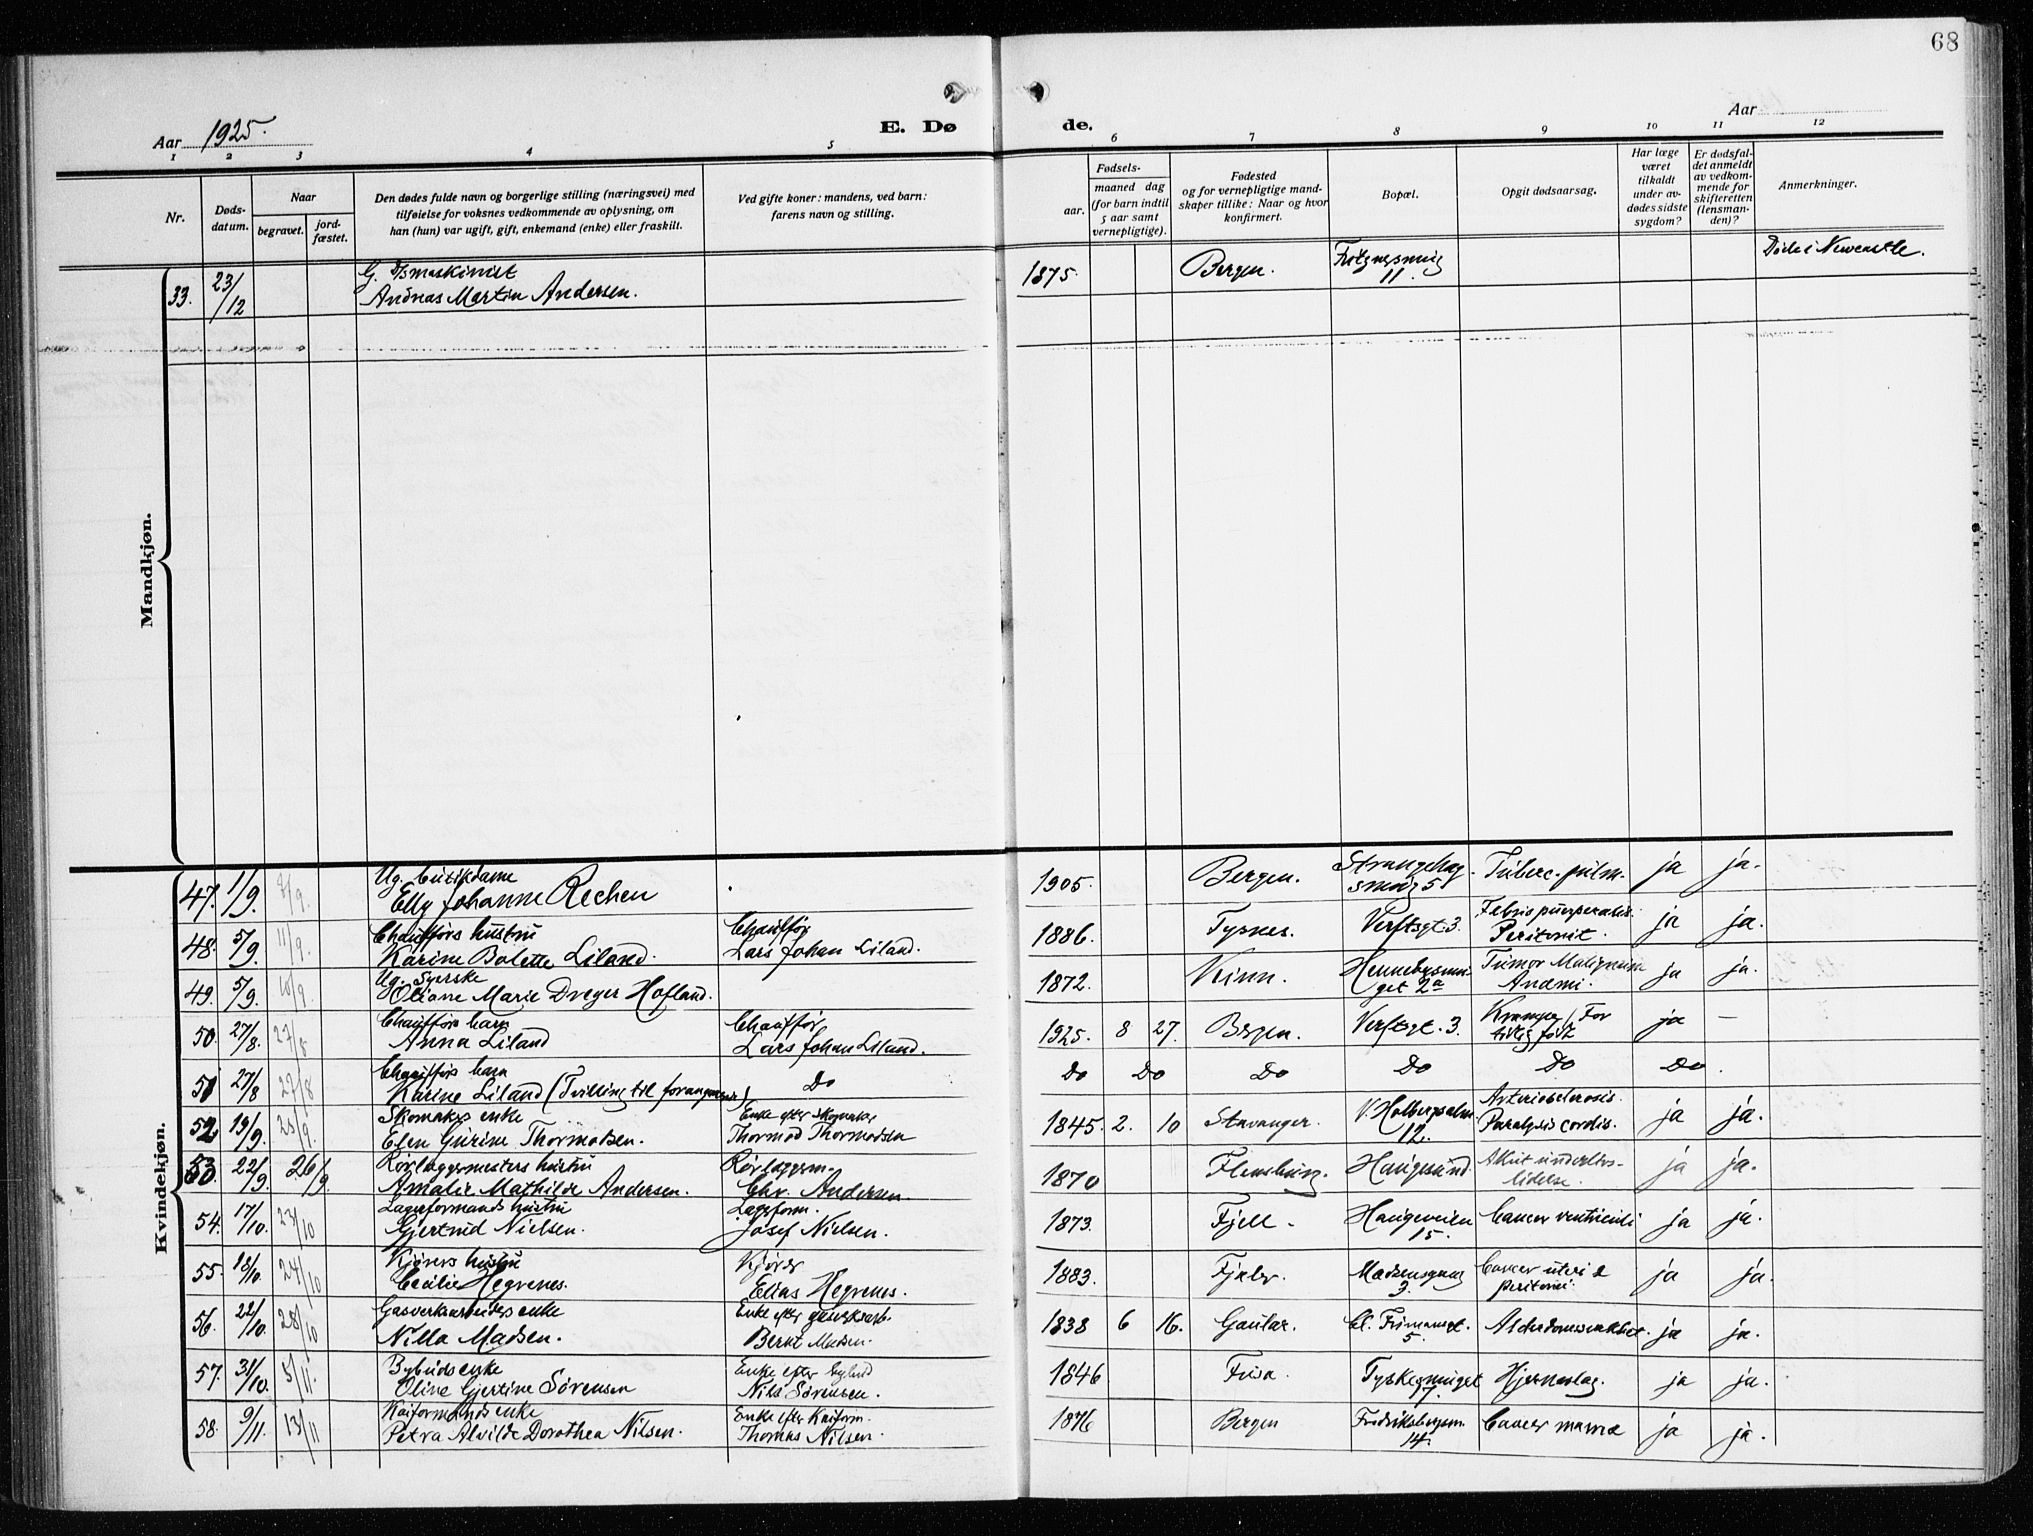 68
Aar 1925.
E. Dø
de.
Aar
1 2 3 4 5 6 7 8 9 10 11 12
Nr.
Døds-
datum.
Naar
begravet.
jord-
fæstet.
Den dødes fulde navn og borgerlige stilling (næringsvei) med
tilføielse for voksnes vedkommende av oplysning, om
han (hun) var ugift, gift, enkemand (enke) eller fraskilt.
Ved gifte koner: mandens, ved barn:
farens navn og stilling.
Fødsels-
aar.
maaned dag
(for barn indtil
5 aar samt
vernepligtige).
Fødested
og for vernepligtige mand-
skaper tillike: Naar og hvor
konfirmert.
Bopæl.
Opgit dødsaarsag.
Har læge
været
tilkaldt
under av-
dødes sidste
sygdom?
Er dødsfal-
det anmeldt
av vedkom-
mende for
skifteretten
(lensman-
den)?
Anmerkninger.
Mandkjøn.
33. 23/12 G. maskinist
Andreas Martin Andersen. 1875. Bergen. 11. Døde i Newcastle.
Kvindekjøn.
47. 1/9. 8/9. Ug. butikdame
Elly Johanne Rechen 1905. Bergen. Strangehag-
smug 5 Tuberc. pulm. ja ja.
48. 5/9. 11/9. Chaufførs hustru
Karine Bolette Liland. Chauffør
Lars Johan Liland. 1886. Tysnes. Verftsgt. 3. Febris puerperalis.
Peritonit. ja ja.
49. 5/9. 10/9. Ug. Syerske
Oliane Marie Dreyer Hofland. 1872. Kinn. 2a Tumor Malignum
ja ja.
50. 27/8. 27/8 Chaufførs barn
Anna Liland Chauffør
Lars Johan Liland. 1925. 8 27. Bergen. Verftsgt. 3. Kramper / For
tidlig født ja —
51 27/8 27/8 Chaufførs barn
Karine Liland (Tvilling til foranganger) Do Do Do Do Do Do Do.
52 19/9. 25/9. Skomakers enke
Elen Gurine Thormodsen. Enke efter Skomaker
Thormod Thormodsen 1845. 2. 10 Stavanger. V. Holbergsalm.
12. Arteriosclerosis.
Paralysis cordis. ja ja.
53. 22/9. 26/9. Rørlæggermesters hustru
Amalie Mathilde Andersen. Rørlæggerm.
Chr. Andersen. 1870 Flensburg. Haugesund. Akut underlivs-
lidelse. ja ja.
54. 17/10. 23/10 Lagerformands hustru
Gjertrud Nielsen. Lagerform.
Josef Nielsen. 1873. Fjell. Haugeveien
15. Cancer ventriculi ja ja.
55. 18/10. 24/10 Kjørers hustru
Cecilie Hegrenes. Kjører
Elias Hegrenes. 1883. Fjaler. 3. Cancer uteri &
peritonei. ja ja.
56. 22/10. 28/10 Gasverksarbeiders enke
Nilla Madsen. Enke efter gasverksarb.
Bernt Madsen. 1838 6 16. Gaular. Cl. Frimansgt.
5. Alderdomssvakhet. ja ja.
57. 31/10. 5/11. Bybuds enke
Oline Gjertine Sørensen Enke efter bybud
Nils Sørensen. 1846 Fusa. Tyskesmuget
7. Hjerneslag. ja ja.
58. 9/11. 13/11 Kaiformands enke
Petra Alvilde Dorothea Nilsen. Enke efter Kaiform.
Thomas Nilsen. 1876 Bergen Fredriksbergsm.
14. Cancer mamæ ja ja.